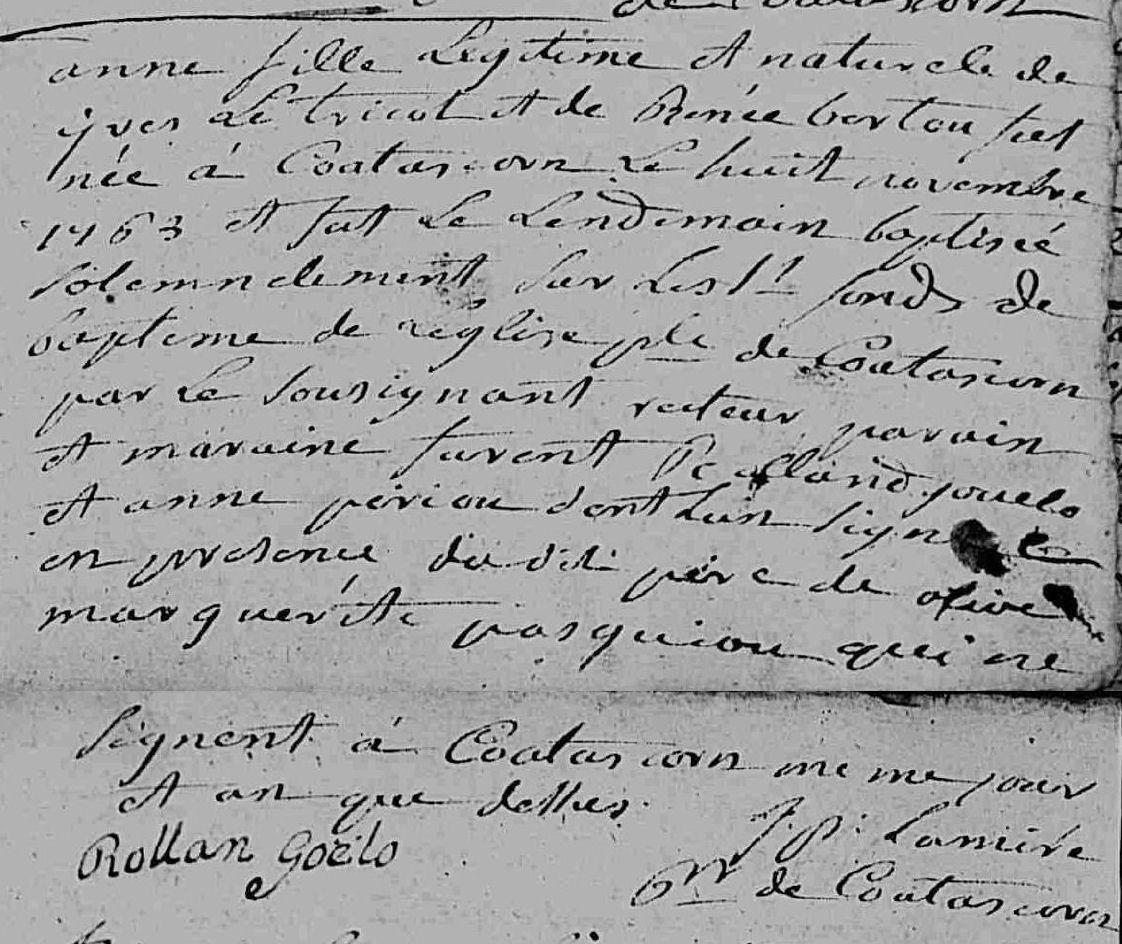 de Coatascorn
anne fille Legitime et naturele de
yves Le tricot et de Renée bertou fut
née à Coatascorn Le huit novembre
1763 et fut Le Lendemain baptisée
solemnelement sur Les sts fonds de
bapteme de L'eglise plle de Coatascorn
par Le sousignant recteur parain
et maraine furent Rolland jouelo
et anne periou dont Lun signe
en presence du dit pere de
marguerite pasquiou qui ne
signent à Coatascorn meme jour
et an que dessus
Rollan Goëlo
J: p: Lamire
rr de Coatascorn